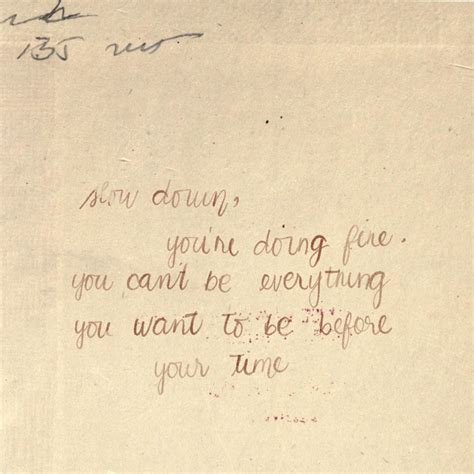 135
slow down,
you're doing fine.
you can't be everything
you want to be before
your time